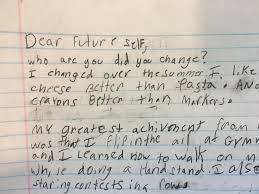 Dear Future self,
who are you did you change?
I changed over the summer I, like
cheese Better than Pasta. And
crayons Better than Markers.
My greatest achivment from
was that I flip in the air at Gym
and I Learned how to walk on m
while doing a Handstand. I also
staring contests in a row.